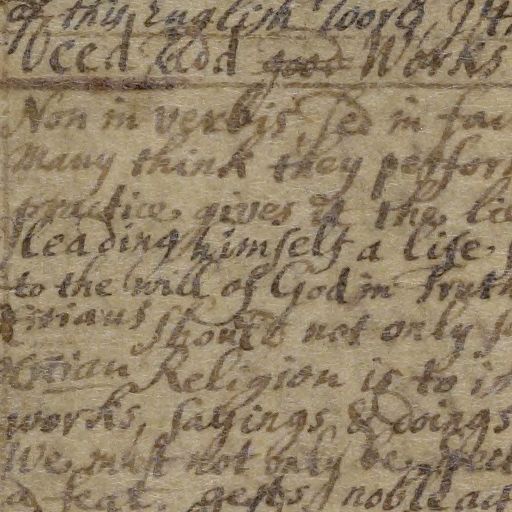 of this English Word,
Deed add good Works
Non in verbis, sed in fac
Many think they perfor
practice, gives it the lie
leading himself a life,
to the will of God in Truth
stians should not only
stian Religion is to i
works, sayings, & doings
We must not only be
a feat. gests, noble act